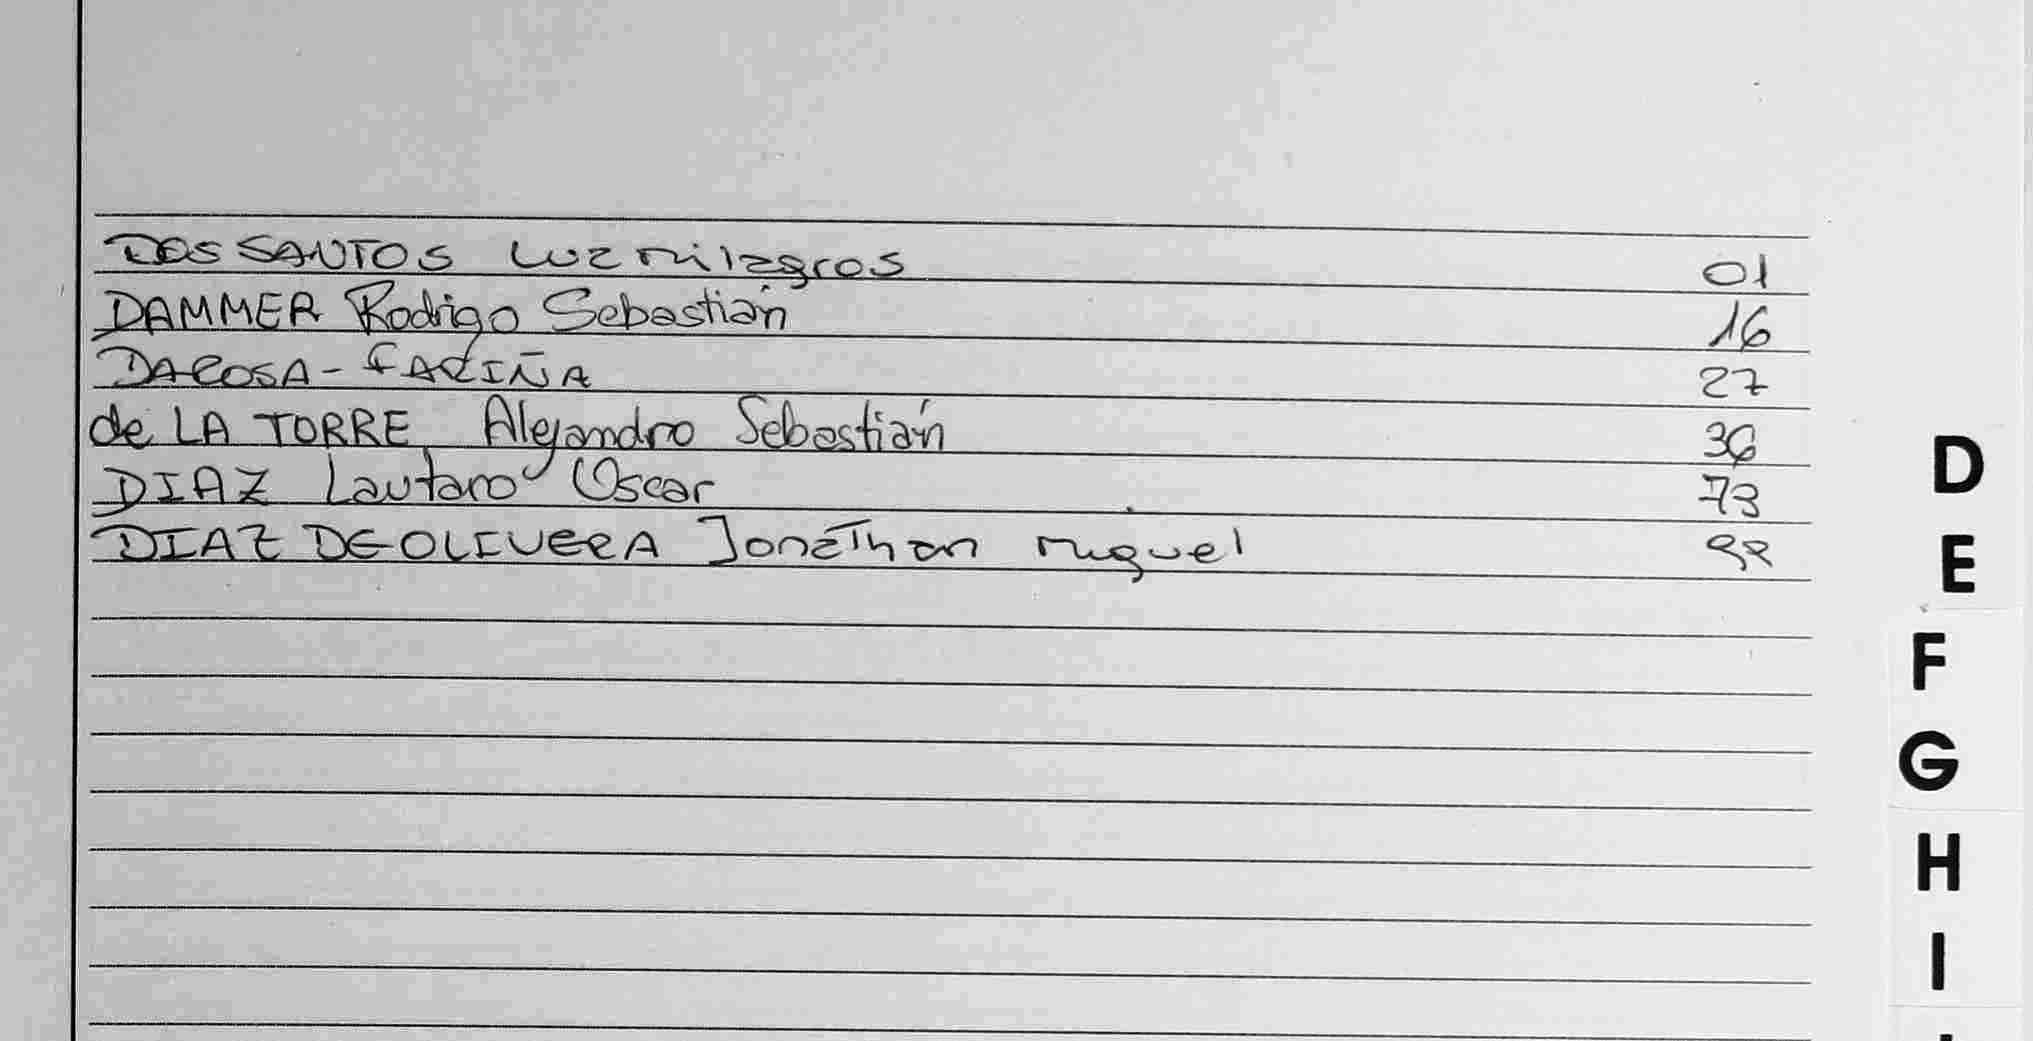 DOS SANTOS Luz milagros 01
DAMMER Rodrigo Sebastián 16
DAROSA - FARIÑA 27
de LA TORRE Alejandro Sebastián 36
DIAZ Lautaro Oscar 73
DIAZ DE OLIVERA Jonathan miguel
D
E
F
G
H
I